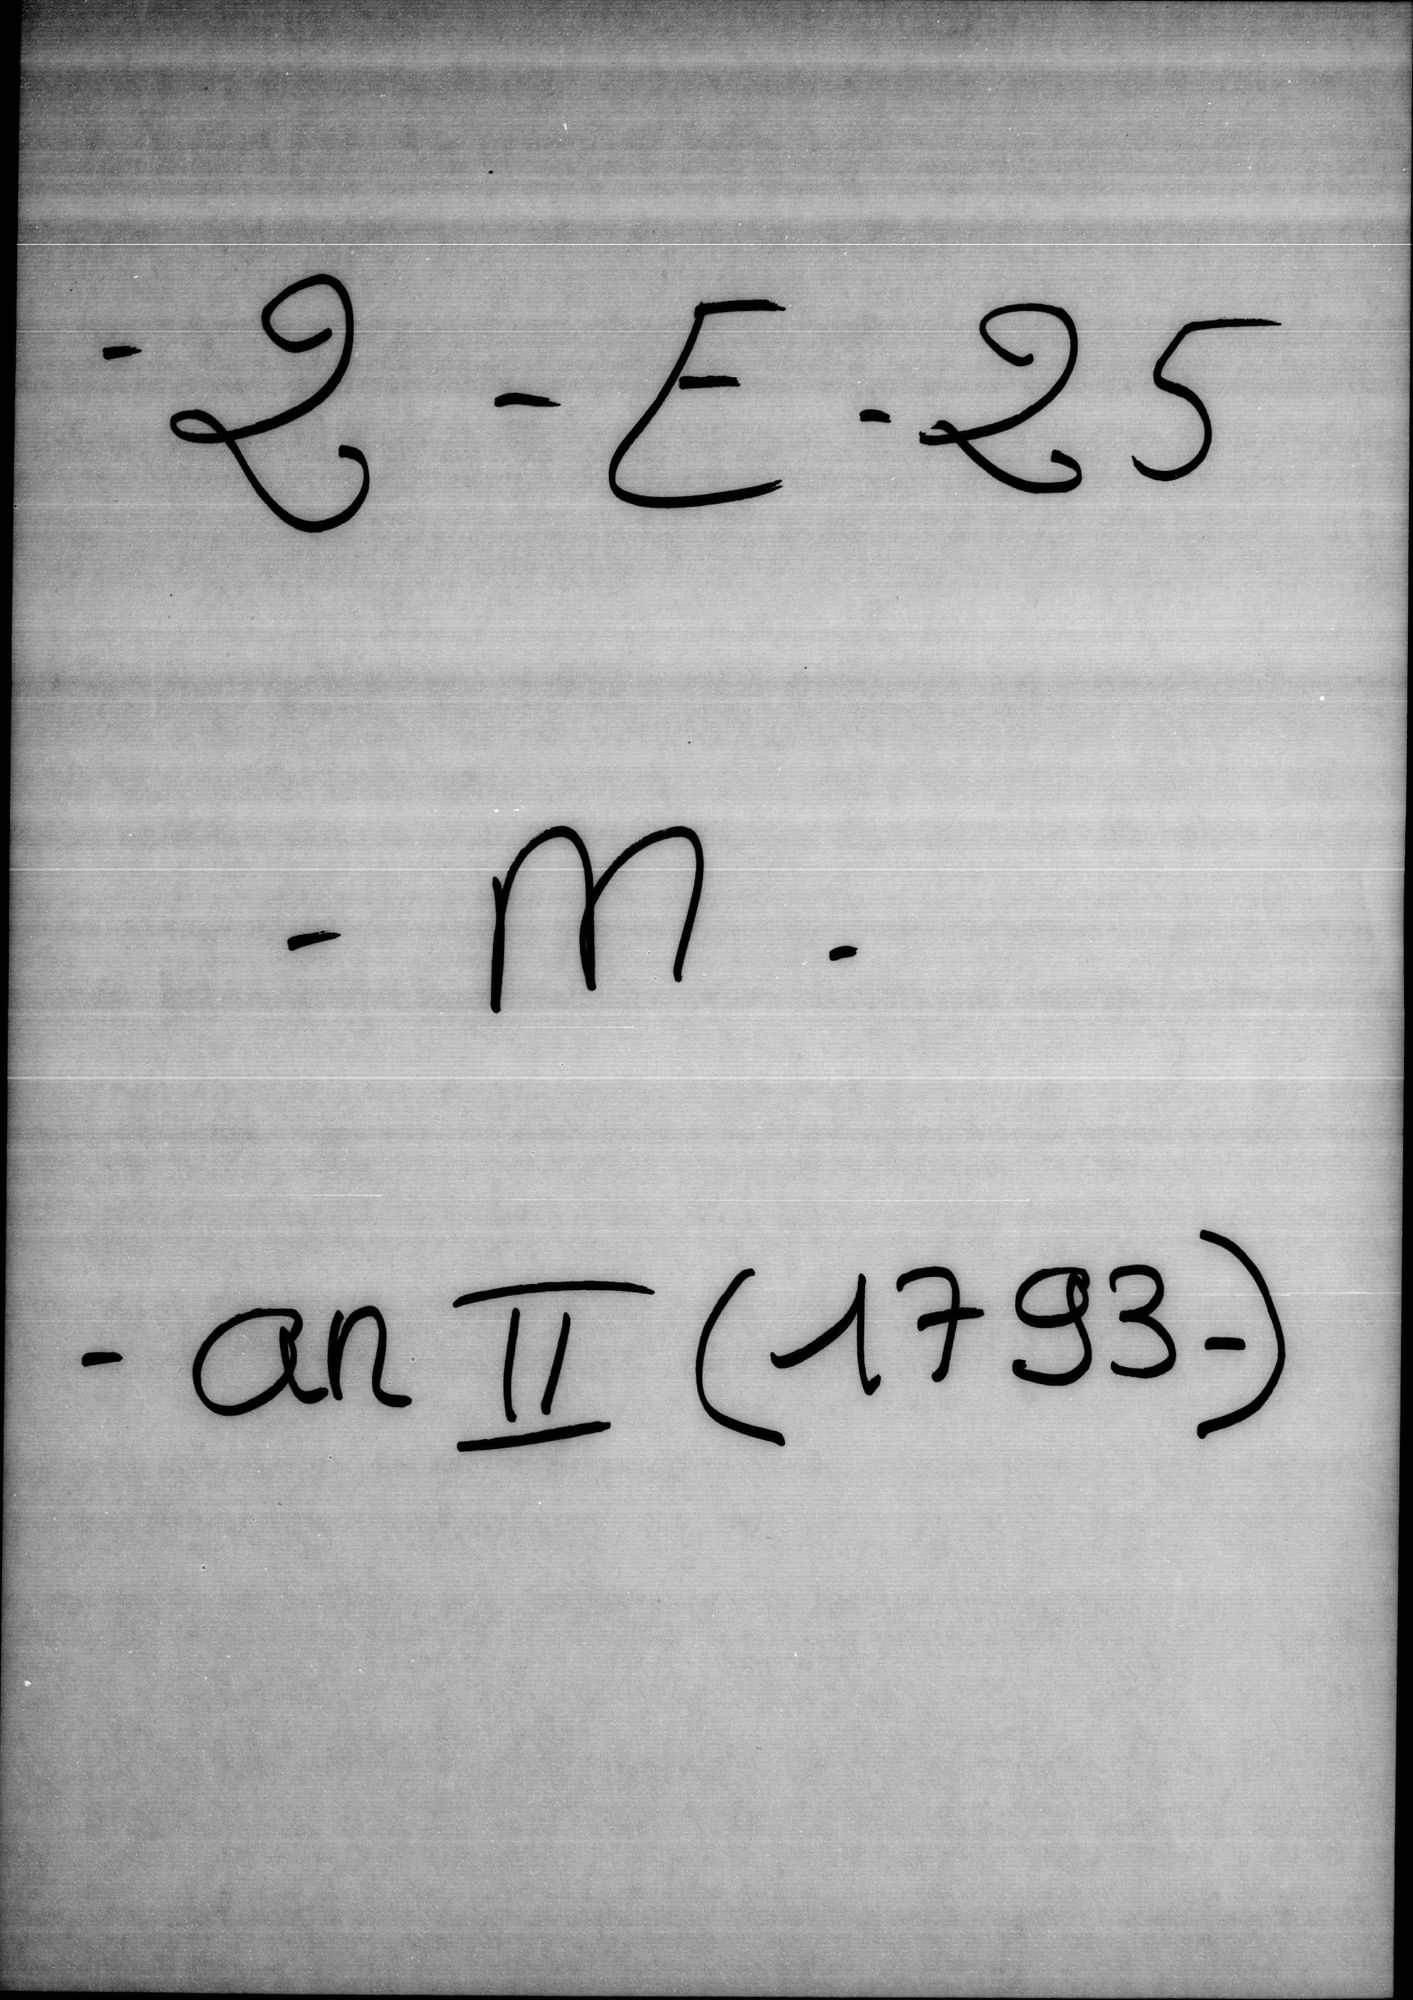 - 2 - E - 25
- M -
- an II (1793-)